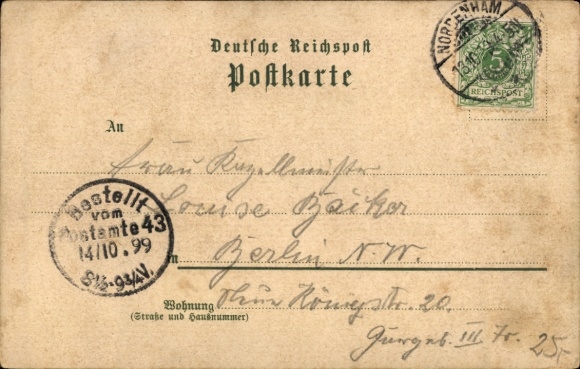 NORDENHAM
5
REICHSPOST
Deutsche Reichspost
Postkarte
An
Frau Kapellmeister
Louise Bäcker
Bestellt
vom
Postamte 43
14/10.99
8½-9¾V.
in Berlin N.W.
Wohnung
(Straße und Hausnummer)
Königstr. 20.
III Tr.
25,-